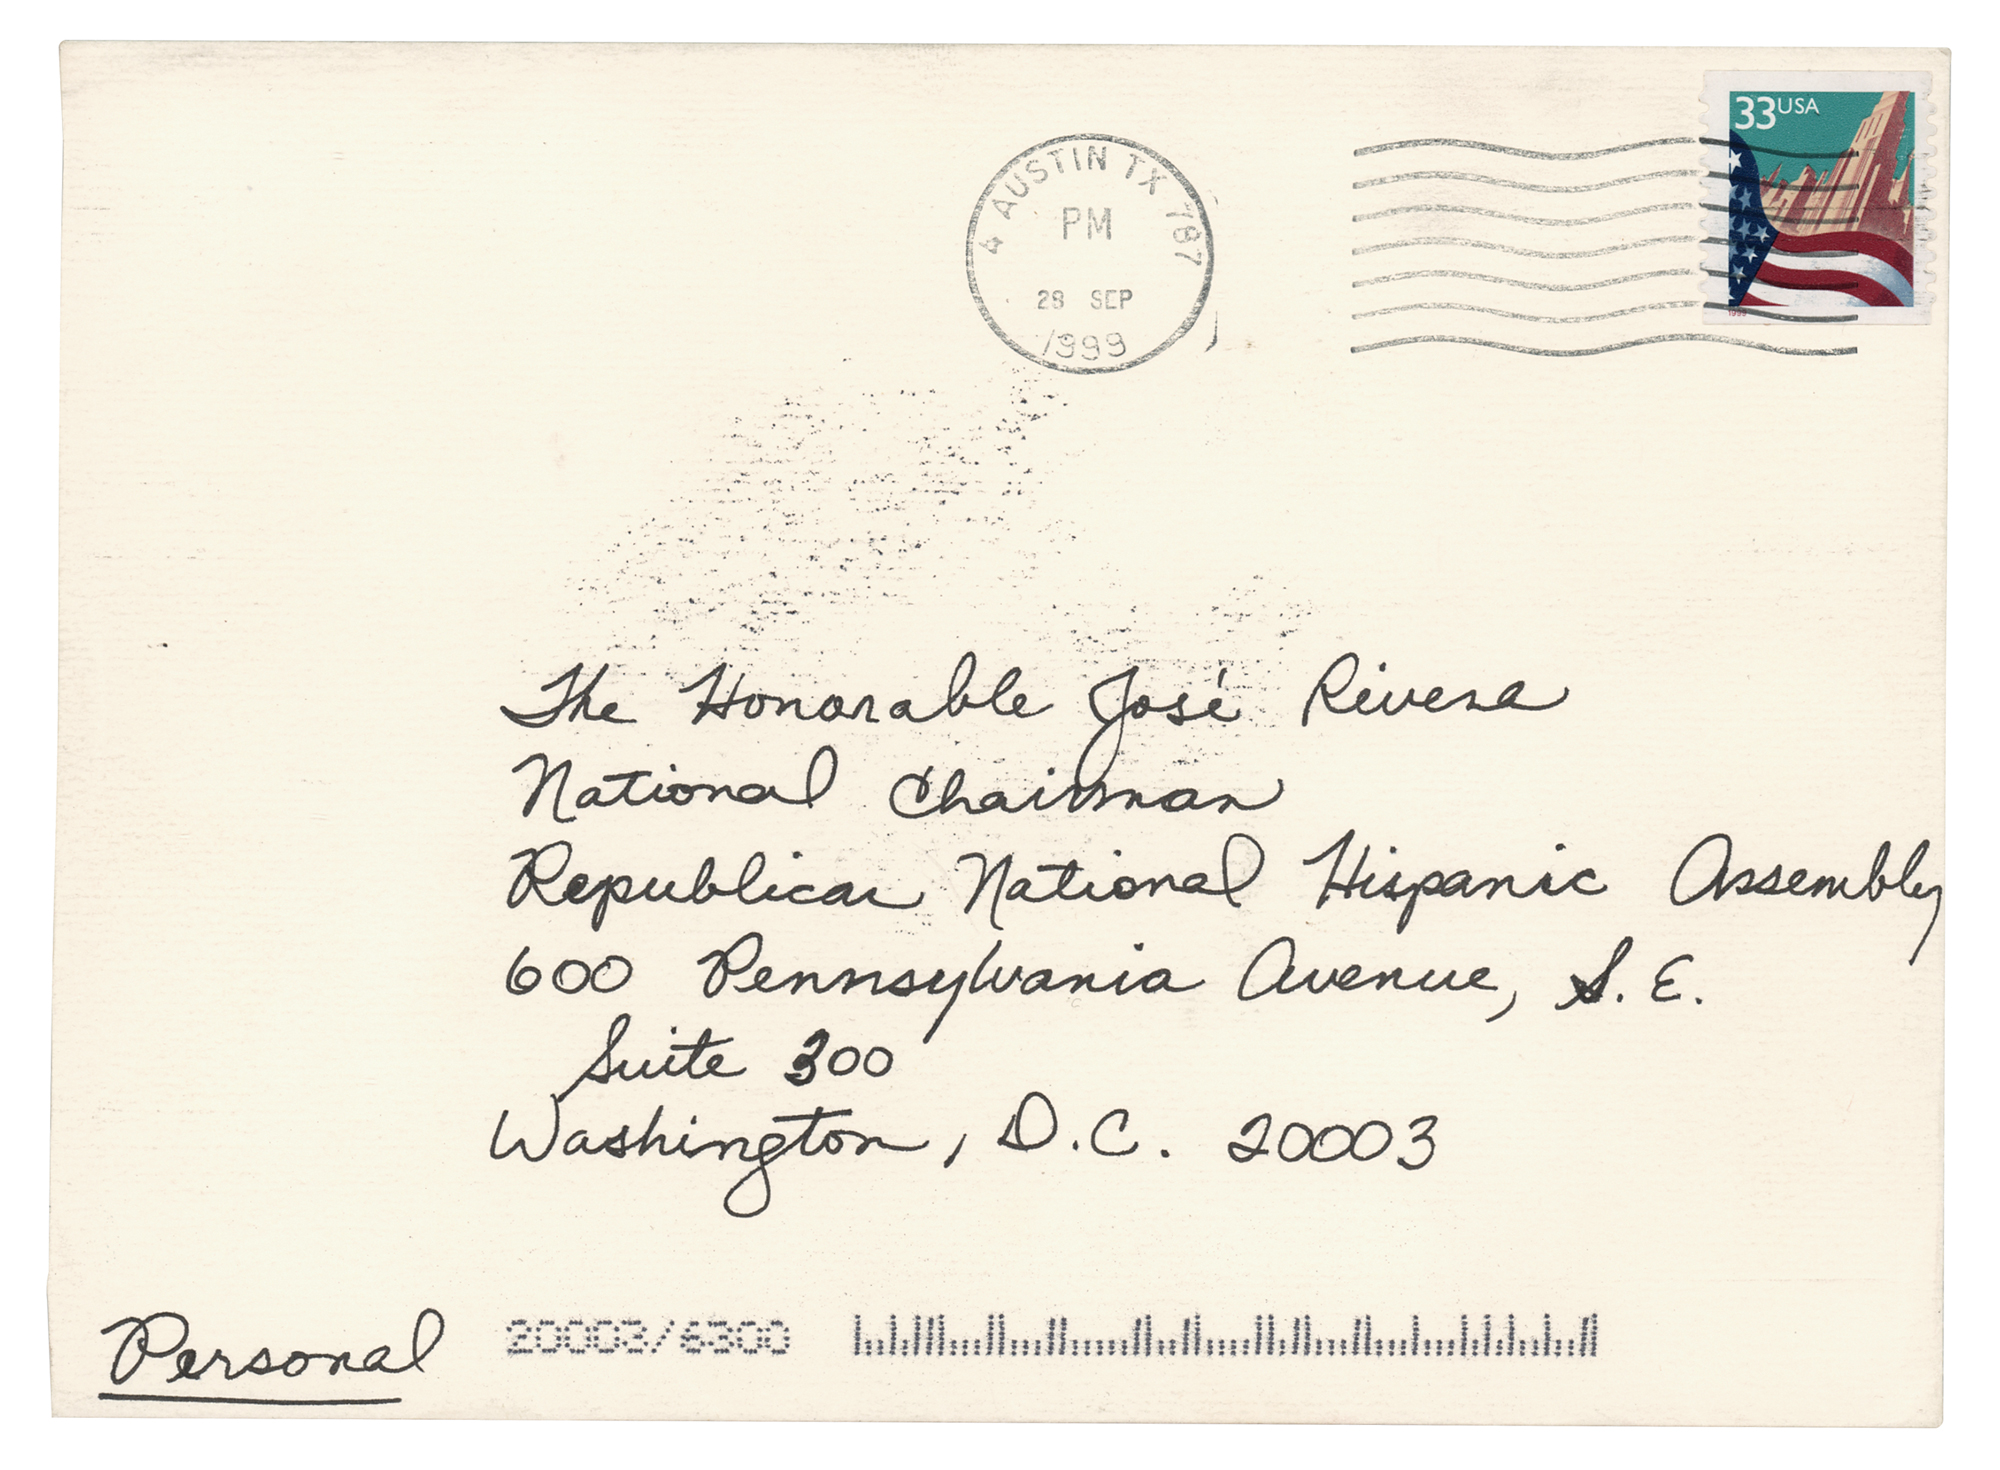 33 USA
4 AUSTIN TX 787
PM
28 SEP
1999
1999
The Honorable José Rivera
National Chairman
Republican National Hispanic Assembly
600 Pennsylvania Avenue, S.E.
Suite 300
Washington, D.C. 20003
Personal
20003/6300